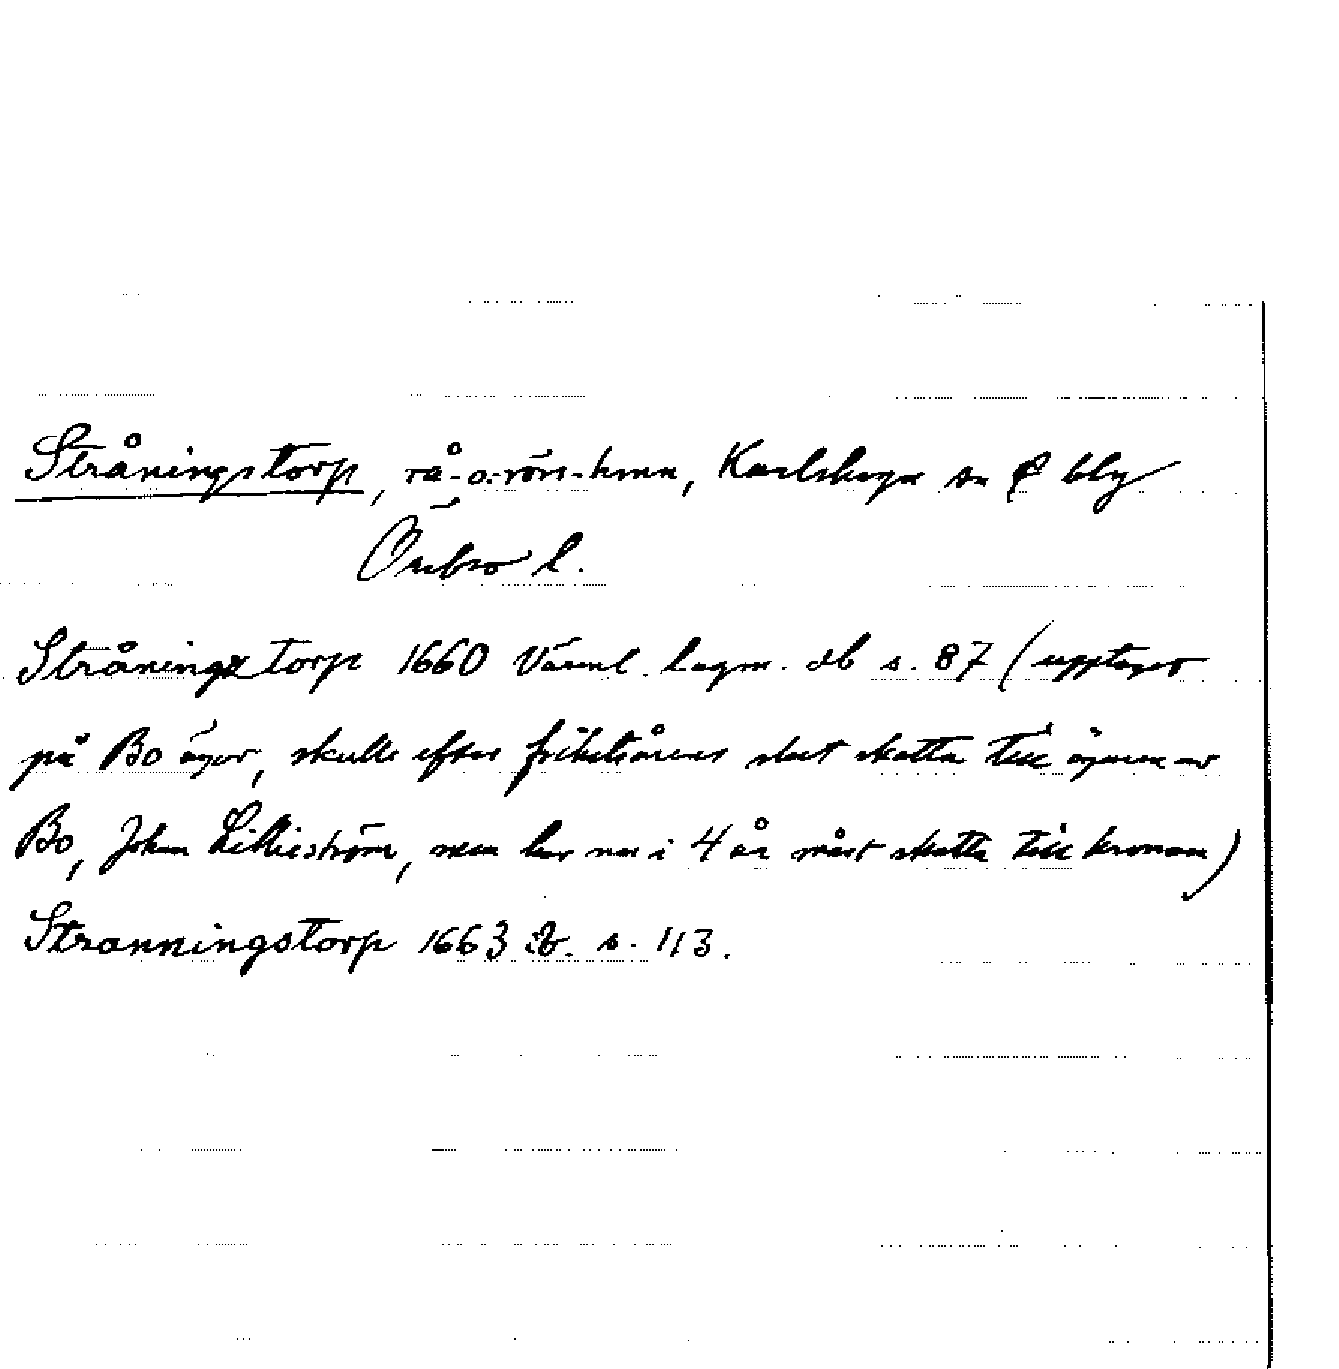 Stråningstorp, rå-o.-rörs-hmn, Karlskoga sn & blg
Örebro l.
Stråningztorp 1660 Värml. lagm. db s. 87 (upptaget
på Bo ägor, skulle efter frihetsårens slut skatta till ägaren av
Bo, Johan Lillieström, men har nu i 4 år måst skatta till kronan)
Stranningstorp 1663 ib. s. 113.